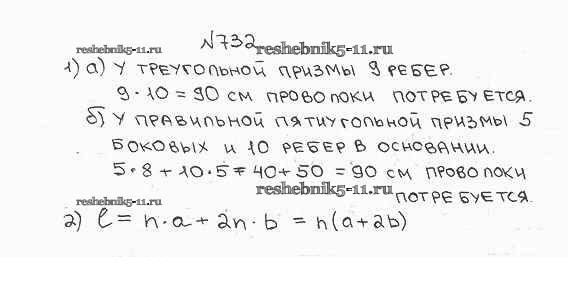 №732
reshebnik5-11.ru reshebnik5-11.ru
1) а) У ТРЕУГОЛЬНОЙ ПРИЗМЫ 9 РЕБЕР.
9·10=90 СМ ПРОВОЛОКИ ПОТРЕБУЕТСЯ.
б) У ПРАВИЛЬНОЙ ПЯТИУГОЛЬНОЙ ПРИЗМЫ 5
БОКОВЫХ И 10 РЕБЕР В ОСНОВАНИИ.
5·8+10·5=40+50=90 СМ ПРОВОЛОКИ
reshebnik5-11.ru
ПОТРЕБУЕТСЯ.
reshebnik5-11.ru
2) ℓ=n·a+2n·b=n(a+2b)